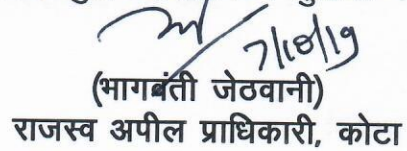 7/10/19
(भागवंती जेठवानी)
राजस्व अपील प्राधिकारी, कोटा